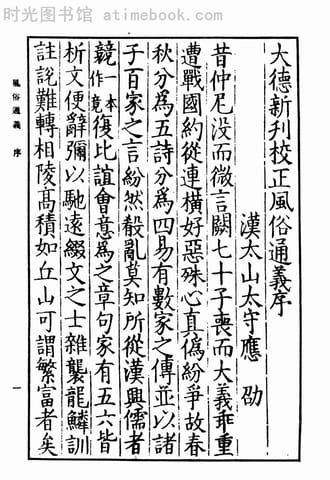 时光图书馆 - atimebook.com
大德新刋校正風俗通義序
漢太山太守應劭
昔仲尼没而微言闕七十子喪而大義乖重
遭戰國約從連橫好惡殊心真偽紛爭故春
秋分爲五詩分爲四易有數家之傳並以諸
子百家之言紛然殽亂莫知所從漢興儒者
競一本作竟復比誼會意爲之章句家有五六皆
析文便辭彌以馳遠綴文之士雜襲龍鱗訓
註說難轉相陵高積如丘山可謂繁富者矣
風俗通義 序
一